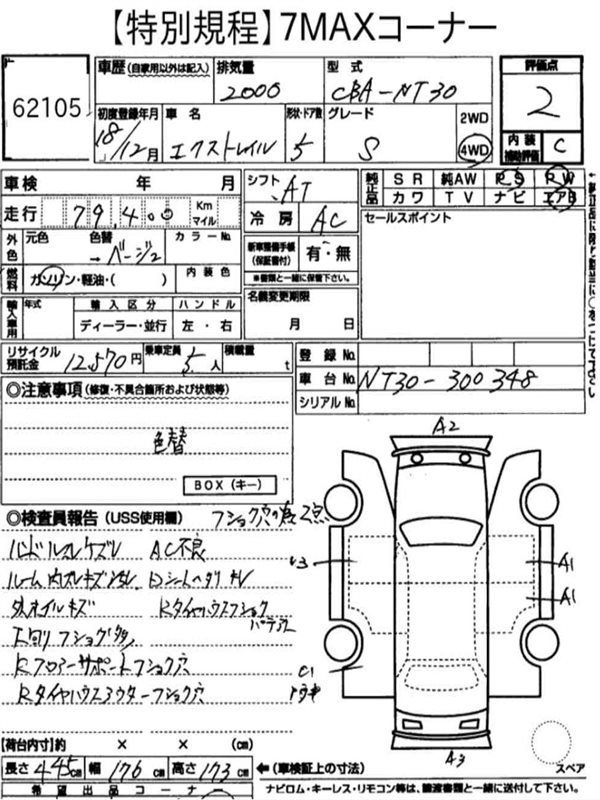 【特別規程】7MAXコーナー
62105
車歴(自家用以外は記入)
排気量
2000
型式
CBA-NT30
評価点
2
初度登録年月
18/12月
車名
エクストレイル
形状・ドア数
5
グレード
S
2WD
4WD
内装補助評価
C
車検 年 月
走行 79,400 Km マイル
シフト AT
冷房 AC
純正品
SR 純AW PS PW
カワ TV ナビ エアB
セールスポイント
外色
元色 色替 カラーNo.
→ ベージュ
新車整備手帳(保証書付)
有・無
※書類と一緒に保管下さい。
燃料
ガソリン・軽油・( )
内装色
輸入車用
年式 輸入区分 ハンドル
ディーラー・並行 左・右
名義変更期限
月 日
リサイクル預託金 12,570円
乗車定員 5人
積載量 t
登録No.
車台No. NT30-300348
シリアルNo.
◎注意事項(修復・不具合箇所および状態等)
色替
BOX(キー)
◎検査員報告(USS使用欄)
ハンドルスレ ケズレ AC不良
R フロアーサポートフショク穴
R タイヤハウスアウターフショク穴
A2
A1
A1
A3
【荷台内寸】約 × × (cm)
長さ 445cm 幅 176cm 高さ 173cm
←(車検証上の寸法)
スペア
希望出品コーナー
ナビロム・キーレス・リモコン等は、譲渡書類と一緒に送付して下さい。